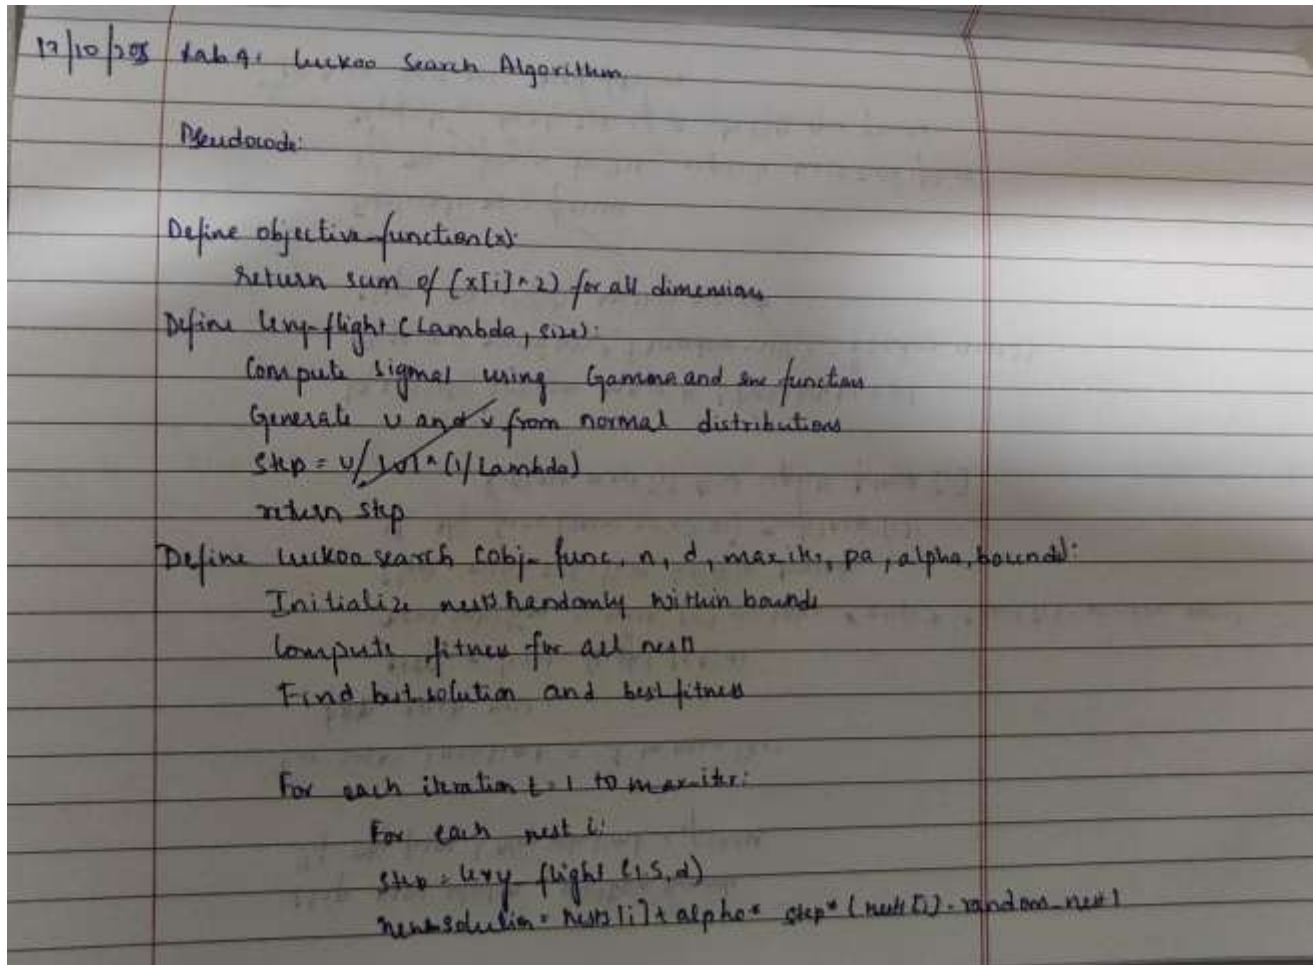 17/10/205 Lab 9: Cuckoo Search Algorithm
Pseudocode:
Define objective-function(x):
return sum of (x[i]^2) for all dimensions
Define levy-flight (Lambda, size):
Compute sigmal using Gamma and sine functions
Generate u and v from normal distributions
Step = u/|v|^(1/Lambda)
return step
Define Cuckoo search (obj-func, n, d, max iter, pa, alpha, bounds):
Initialize nests randomly within bounds
Compute fitness for all nests
Find best solution and best fitness
For each iteration t=1 to max-iter:
For each nest i:
step = levy-flight (1.5, d)
new-solution = nests[i] + alpha* step* (nests[i] - random-nest)